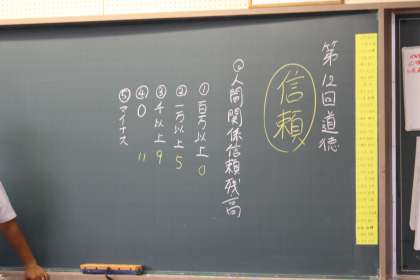 第12回道徳
信頼
Q人間関係信頼残高
①百万以上 0
②一万以上 5
③千以上 9
④0 11
⑤マイナス